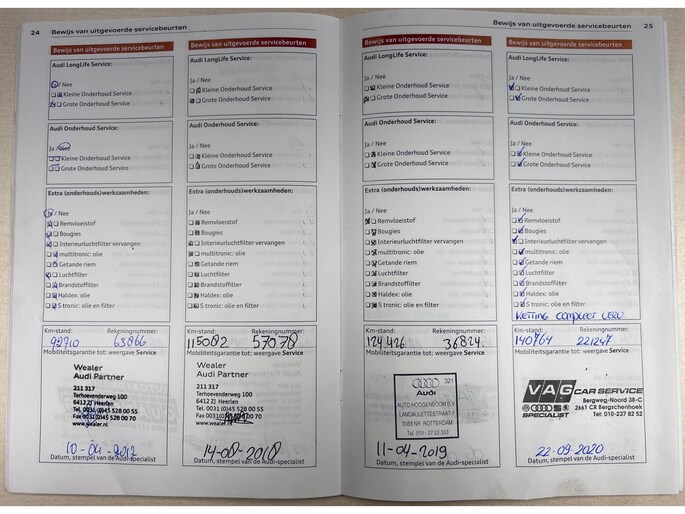 24 Bewijs van uitgevoerde servicebeurten
Bewijs van uitgevoerde servicebeurten
Audi LongLife Service:
Ja / Nee
Kleine Onderhoud Service
Grote Onderhoud Service
Audi Onderhoud Service:
Ja / Nee
Kleine Onderhoud Service
Grote Onderhoud Service
Extra (onderhouds)werkzaamheden:
Ja / Nee
Remvloeistof
Bougies
Interieurluchtfilter vervangen
multitronic: olie
Getande riem
Luchtfilter
Brandstoffilter
Haldex: olie
S tronic: olie en filter
Km-stand: Rekeningnummer:
92710 63866
Mobiliteitsgarantie tot: weergave Service
Wealer
Audi Partner
211 317
Terhoevenderweg 100
6412 ZJ Heerlen
Tel. 0031 (0)45 528 00 55
Fax 0031 (0)45 528 00 70
www.wealer.nl
10-04-2017
Datum, stempel van de Audi-specialist
Bewijs van uitgevoerde servicebeurten
Audi LongLife Service:
Ja / Nee
Kleine Onderhoud Service
Grote Onderhoud Service
Audi Onderhoud Service:
Ja / Nee
Kleine Onderhoud Service
Grote Onderhoud Service
Extra (onderhouds)werkzaamheden:
Ja / Nee
Remvloeistof
Bougies
Interieurluchtfilter vervangen
multitronic: olie
Getande riem
Luchtfilter
Brandstoffilter
Haldex: olie
S tronic: olie en filter
Km-stand: Rekeningnummer:
115082 57078
Mobiliteitsgarantie tot: weergave Service
Wealer
Audi Partner
211 317
Terhoevenderweg 100
6412 ZJ Heerlen
Tel. 0031 (0)45 528 00 55
www.wealer
14-08-2018
Datum, stempel van de Audi-specialist
Bewijs van uitgevoerde servicebeurten 25
Bewijs van uitgevoerde servicebeurten
Audi LongLife Service:
Ja / Nee
Kleine Onderhoud Service
Grote Onderhoud Service
Audi Onderhoud Service:
Ja / Nee
Kleine Onderhoud Service
Grote Onderhoud Service
Extra (onderhouds)werkzaamheden:
Ja / Nee
Remvloeistof
Bougies
Interieurluchtfilter vervangen
multitronic: olie
Getande riem
Luchtfilter
Brandstoffilter
Haldex: olie
S tronic: olie en filter
Km-stand: Rekeningnummer:
124.426 36824
Mobiliteitsgarantie tot: weergave Service
321
Audi
AUTO HOOGENBOOM B.V.
ROTTERDAM
11-04-2019
Datum, stempel van de Audi-specialist
Bewijs van uitgevoerde servicebeurten
Audi LongLife Service:
Ja / Nee
Kleine Onderhoud Service
Grote Onderhoud Service
Audi Onderhoud Service:
Ja / Nee
Kleine Onderhoud Service
Grote Onderhoud Service
Extra (onderhouds)werkzaamheden:
Ja / Nee
Remvloeistof
Bougies
Interieurluchtfilter vervangen
multitronic: olie
Getande riem
Luchtfilter
Brandstoffilter
Haldex: olie
S tronic: olie en filter
KETTING COMPLEET
Km-stand: Rekeningnummer:
140764 221247
Mobiliteitsgarantie tot: weergave Service
VAG CAR SERVICE
Bergweg-Noord 38-C
2661 CR Bergschenhoek
SPECIALIST Tel: 010-237 82 52
22-09-2020
Datum, stempel van de Audi-specialist